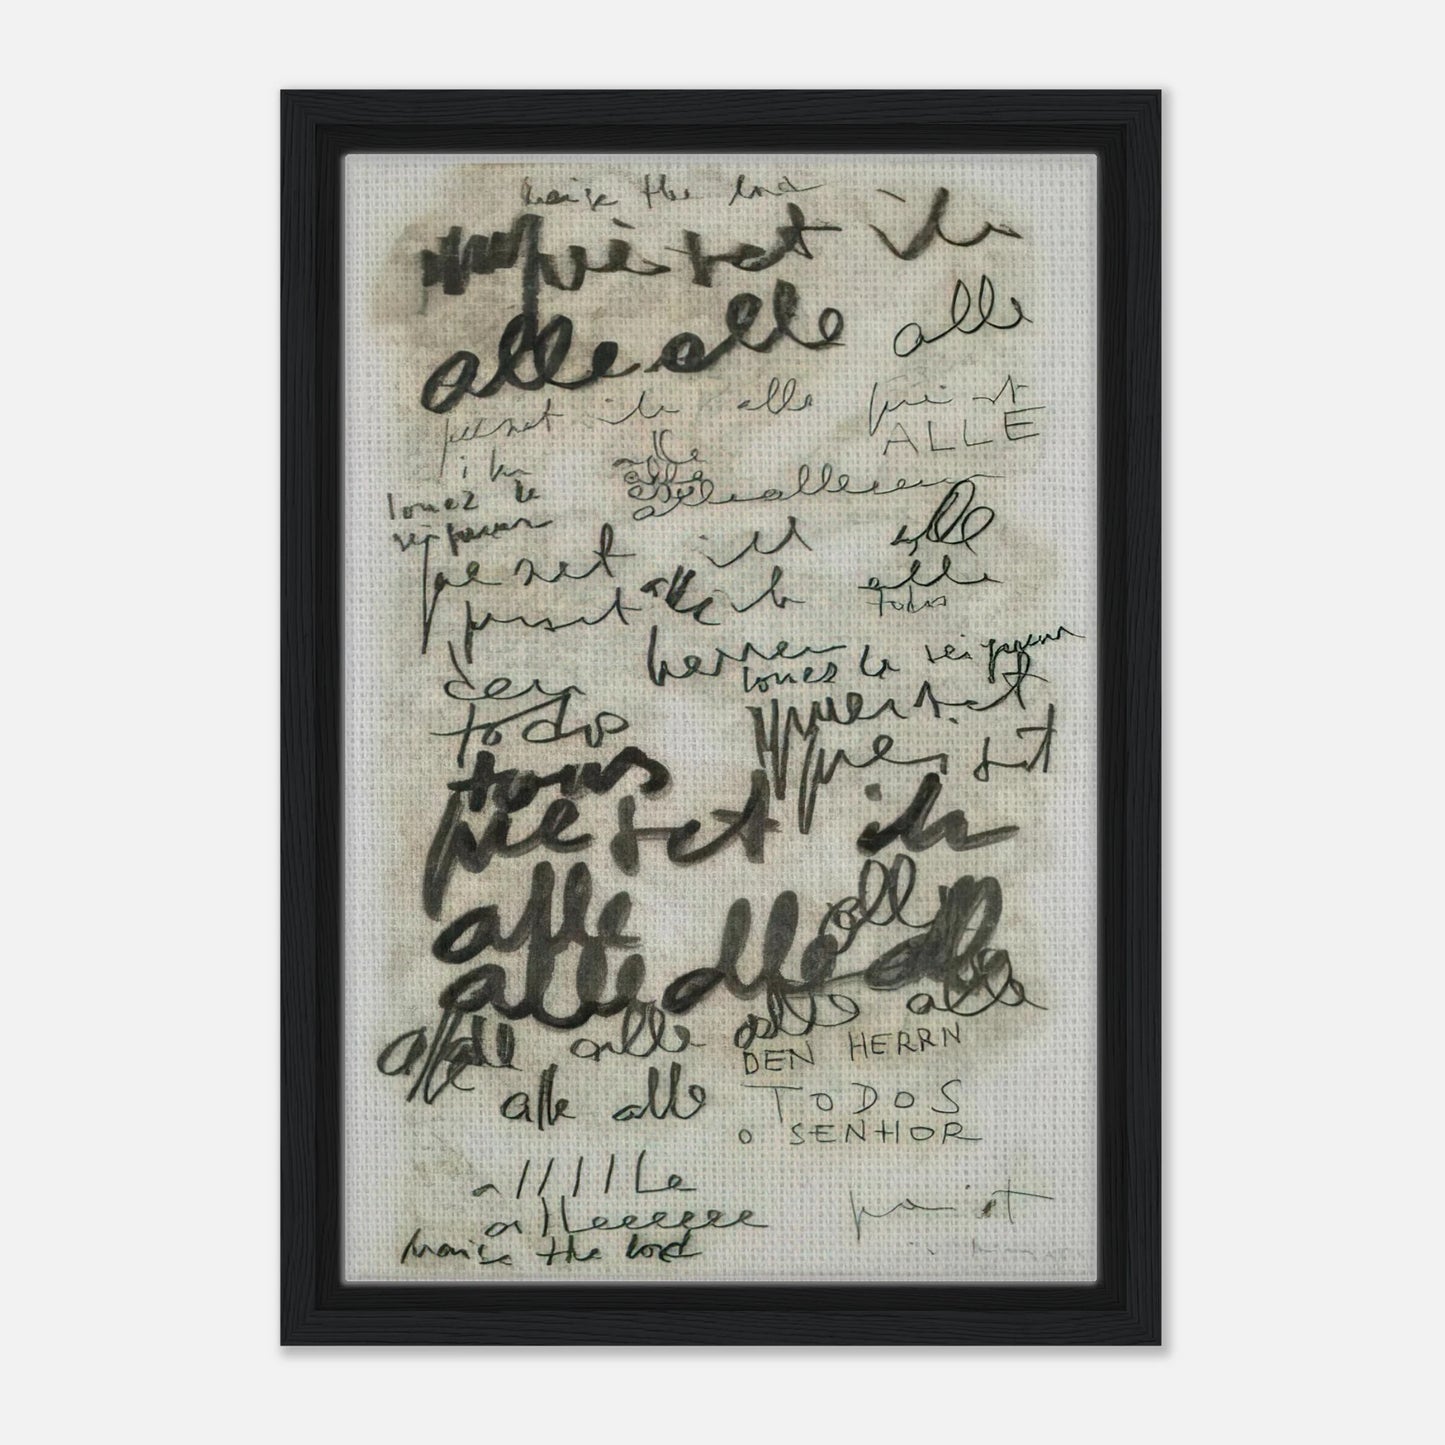 praise the lord
preiset ihn
alle alle alle
preiset ihn alle preist
ALLE
ihn alle
louez le alle
alle alleeeee
seigneur
preiset ihn alle
preiset alle ihn alle
todos
herren louez le seigneur
den preiset
todos preiset
tous
preiset ihn
alle alle
alle alle alle
alle alle alle alle
DEN HERRN
alle alle TODOS
O SENHOR
allllle
alleeeeeee preist
praise the lord